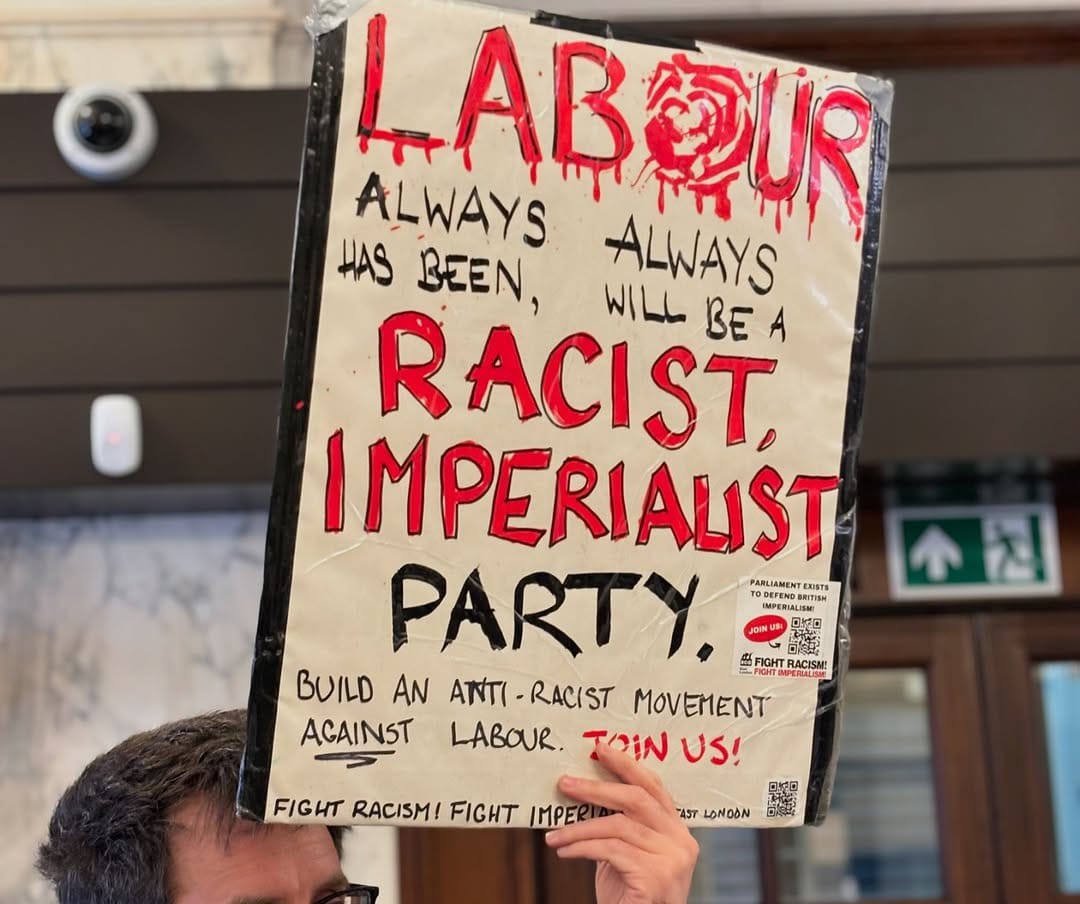 LABOUR
ALWAYS
HAS BEEN,
ALWAYS
WILL BE A
RACIST,
IMPERIALIST
PARTY.
PARLIAMENT EXISTS
TO DEFEND BRITISH
IMPERIALISM!
JOIN US!
FIGHT RACISM!
FIGHT IMPERIALISM!
BUILD AN ANTI-RACIST MOVEMENT
AGAINST LABOUR. JOIN US!
FIGHT RACISM! FIGHT LONDON